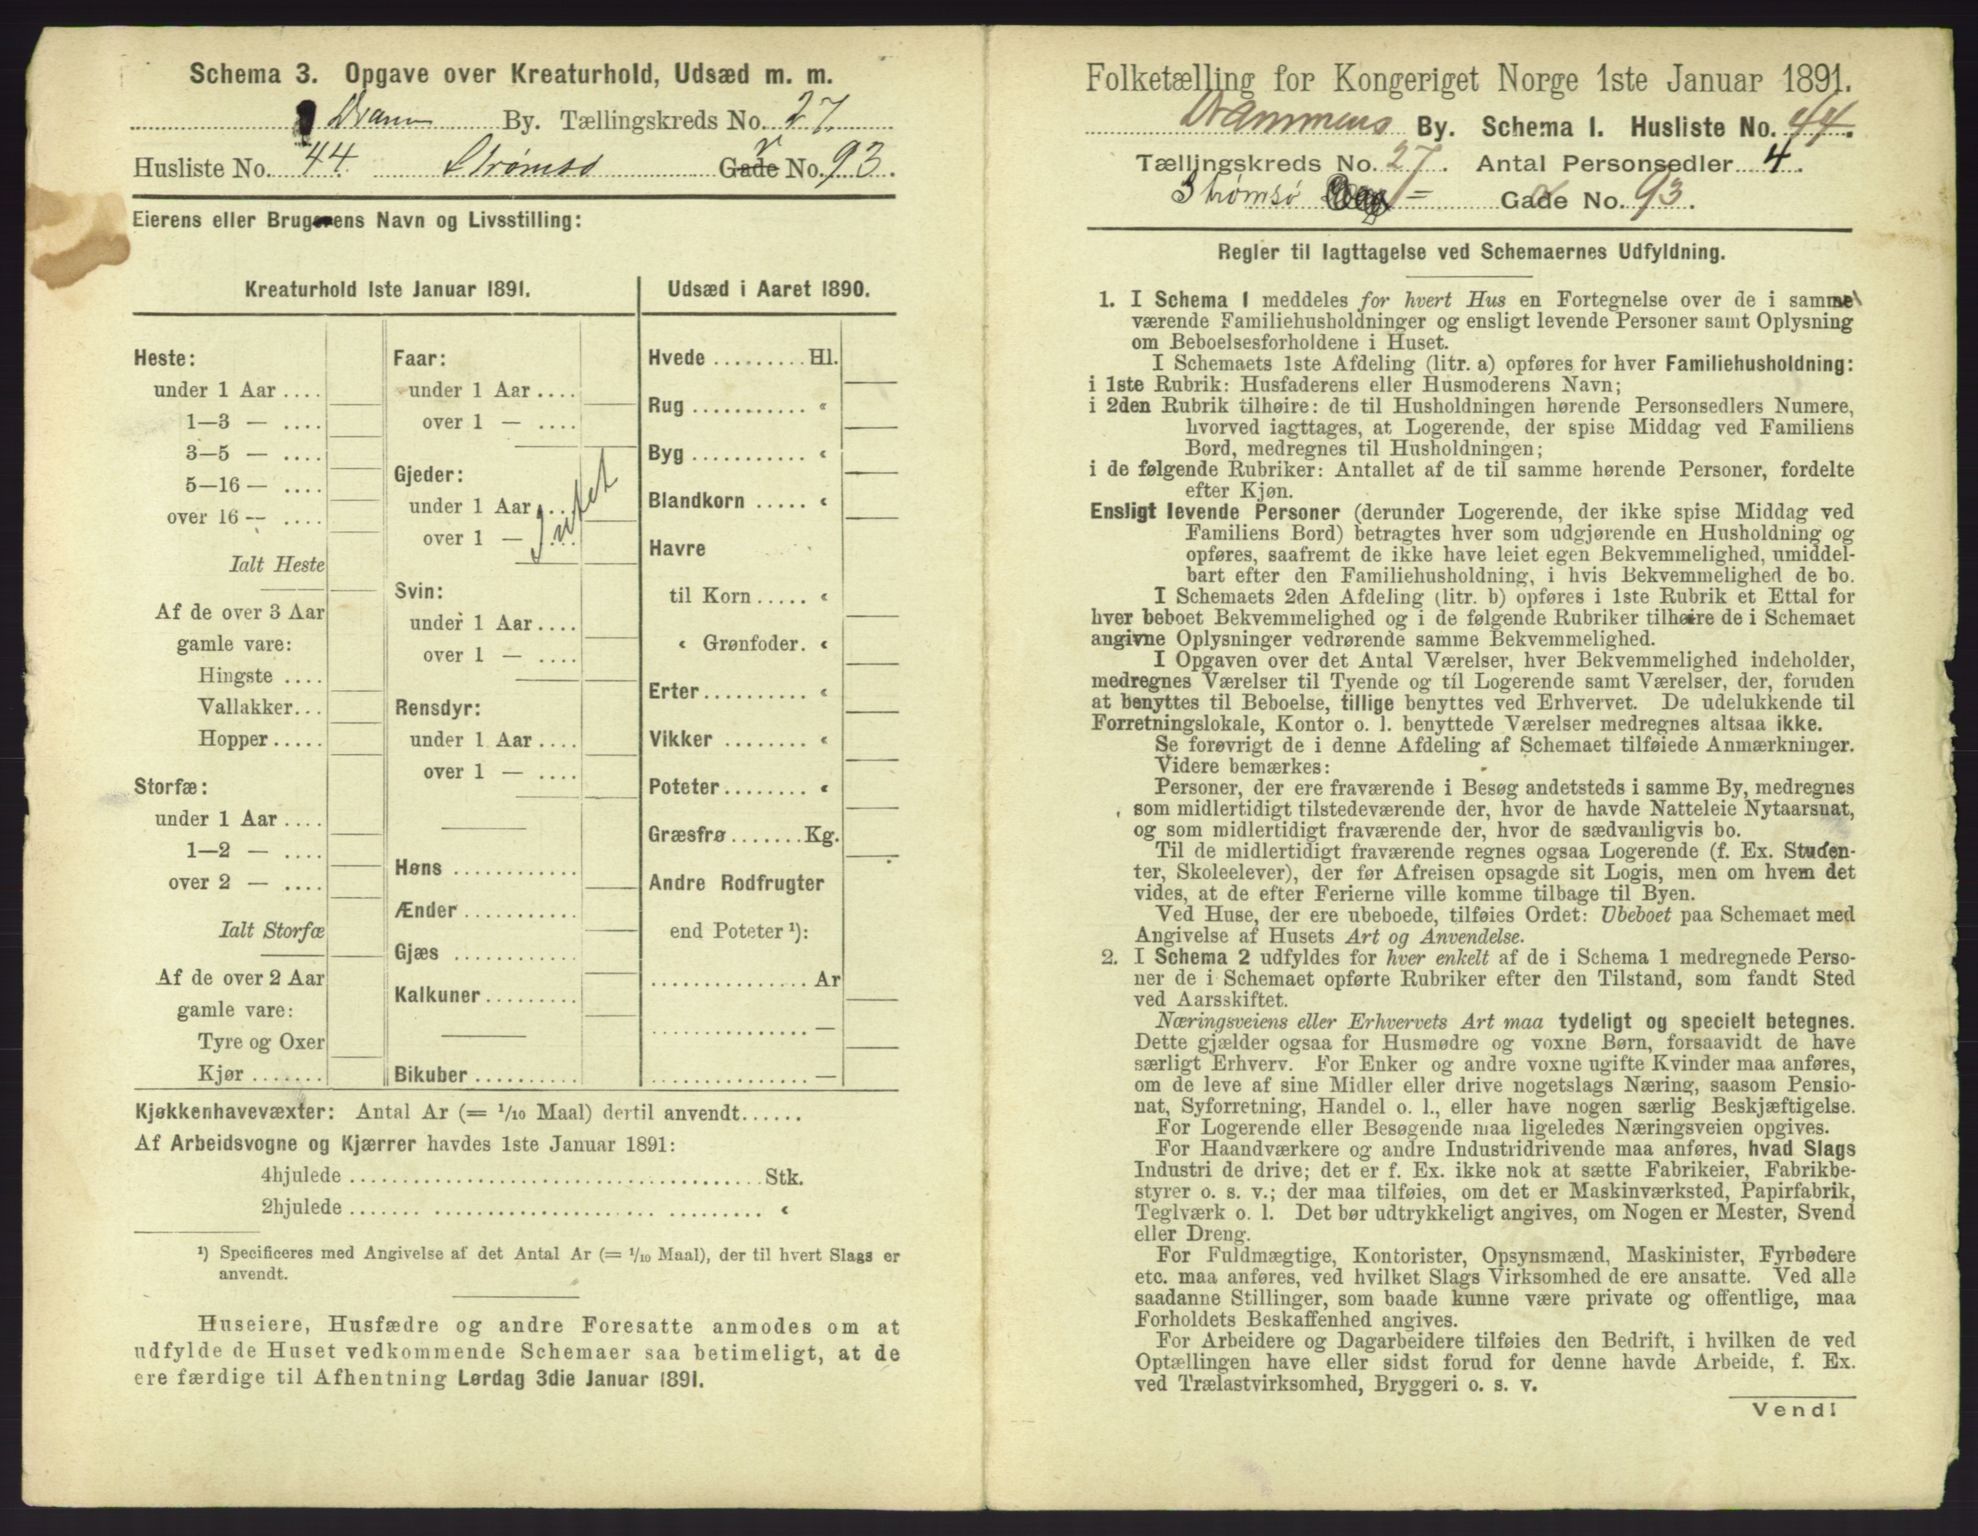 Schema 3. Opgave over Kreaturhold, Udsæd m. m.
Dramm By. Tællingskreds No. 27.
Husliste No. 44. Strømsø Gade No. 93.
Eierens eller Brugerens Navn og Livsstilling:
Kreaturhold 1ste Januar 1891.
Heste:
under 1 Aar ....
1—3 — ....
3—5 — ....
5—16 — ....
over 16 — ....
Ialt Heste
Af de over 3 Aar
gamle vare:
Hingste ....
Vallakker...
Hopper.....
Storfæ:
under 1 Aar ....
1—2 — ....
over 2 — ....
Ialt Storfæ
Af de over 2 Aar
gamle vare:
Tyre og Oxer
Kjør.......
Faar:
under 1 Aar ....
over 1 — ....
Gjeder:
under 1 Aar ....
over 1 — ....
Intet
Svin:
under 1 Aar ....
over 1 — ....
Rensdyr:
under 1 Aar ....
over 1 — ....
Høns ............
Ænder...........
Gjæs ............
Kalkuner.........
Bikuber ..........
Udsæd i Aaret 1890.
Hvede .........Hl.
Rug ........... «
Byg ........... «
Blandkorn ..... «
Havre
til Korn..... «
« Grønfoder. «
Erter.......... «
Vikker ........ «
Poteter........ «
Græsfrø.......Kg.
Andre Rodfrugter
end Poteter ¹):
...............Ar
...............—
...............—
Kjøkkenhavevæxter: Antal Ar (= 1/10 Maal) dertil anvendt......
Af Arbeidsvogne og Kjærrer havdes 1ste Januar 1891:
4hjulede ........................................Stk.
2hjulede ........................................ «
¹) Specificeres med Angivelse af det Antal Ar (= 1/10 Maal), der til hvert Slags er
anvendt.
Huseiere, Husfædre og andre Foresatte anmodes om at
udfylde de Huset vedkommende Schemaer saa betimeligt, at de
ere færdige til Afhentning Lørdag 3die Januar 1891.
Folketælling for Kongeriget Norge 1ste Januar 1891.
Drammens By. Schema 1. Husliste No. 44.
Tællingskreds No. 27. Antal Personsedler 4.
Strømsø Gade No. 93.
Regler til Iagttagelse ved Schemaernes Udfyldning.
1. I Schema 1 meddeles for hvert Hus en Fortegnelse over de i samme
værende Familiehusholdninger og ensligt levende Personer samt Oplysning
om Beboelsesforholdene i Huset.
I Schemaets 1ste Afdeling (litr. a) opføres for hver Familiehusholdning:
i 1ste Rubrik: Husfaderens eller Husmoderens Navn;
i 2den Rubrik tilhøire: de til Husholdningen hørende Personsedlers Numere,
hvorved iagttages, at Logerende, der spise Middag ved Familiens
Bord, medregnes til Husholdningen;
i de følgende Rubriker: Antallet af de til samme hørende Personer, fordelte
efter Kjøn.
Ensligt levende Personer (derunder Logerende, der ikke spise Middag ved
Familiens Bord) betragtes hver som udgjørende en Husholdning og
opføres, saafremt de ikke have leiet egen Bekvemmelighed, umiddel-
bart efter den Familiehusholdning, i hvis Bekvemmelighed de bo.
I Schemaets 2den Afdeling (litr. b) opføres i 1ste Rubrik et Ettal for
hver beboet Bekvemmelighed og i de følgende Rubriker tilhøire de i Schemaet
angivne Oplysninger vedrørende samme Bekvemmelighed.
I Opgaven over det Antal Værelser, hver Bekvemmelighed indeholder,
medregnes Værelser til Tyende og til Logerende samt Værelser, der, foruden
at benyttes til Beboelse, tillige benyttes ved Erhvervet. De udelukkende til
Forretningslokale, Kontor o. l. benyttede Værelser medregnes altsaa ikke.
Se forøvrigt de i denne Afdeling af Schemaet tilføiede Anmærkninger.
Videre bemærkes:
Personer, der ere fraværende i Besøg andetsteds i samme By, medregnes
som midlertidigt tilstedeværende der, hvor de havde Natteleie Nytaarsnat,
og som midlertidigt fraværende der, hvor de sædvanligvis bo.
Til de midlertidigt fraværende regnes ogsaa Logerende (f. Ex. Studen-
ter, Skoleelever), der før Afreisen opsagde sit Logis, men om hvem det
vides, at de efter Ferierne ville komme tilbage til Byen.
Ved Huse, der ere ubeboede, tilføies Ordet: Ubeboet paa Schemaet med
Angivelse af Husets Art og Anvendelse.
2. I Schema 2 udfyldes for hver enkelt af de i Schema 1 medregnede Perso-
ner de i Schemaet opførte Rubriker efter den Tilstand, som fandt Sted
ved Aarsskiftet.
Næringsveiens eller Erhvervets Art maa tydeligt og specielt betegnes.
Dette gjælder ogsaa for Husmødre og voxne Børn, forsaavidt de have
særligt Erhverv. For Enker og andre voxne ugifte Kvinder maa anføres,
om de leve af sine Midler eller drive nogetslags Næring, saasom Pensio-
nat, Syforretning, Handel o. l., eller have nogen særlig Beskjæftigelse.
For Logerende eller Besøgende maa ligeledes Næringsveien opgives.
For Haandværkere og andre Industridrivende maa anføres, hvad Slags
Industri de drive; det er f. Ex. ikke nok at sætte Fabrikeier, Fabrikbe-
styrer o. s. v.; der maa tilføies, om det er Maskinværksted, Papirfabrik,
Teglværk o. l. Det bør udtrykkeligt angives, om Nogen er Mester, Svend
eller Dreng.
For Fuldmægtige, Kontorister, Opsynsmænd, Maskinister, Fyrbødere
etc. maa anføres, ved hvilket Slags Virksomhed de ere ansatte. Ved alle
saadanne Stillinger, som baade kunne være private og offentlige, maa
Forholdets Beskaffenhed angives.
For Arbeidere og Dagarbeidere tilføies den Bedrift, i hvilken de ved
Optællingen have eller sidst forud for denne havde Arbeide, f. Ex.
ved Trælastvirksomhed, Bryggeri o. s. v.
Vend!